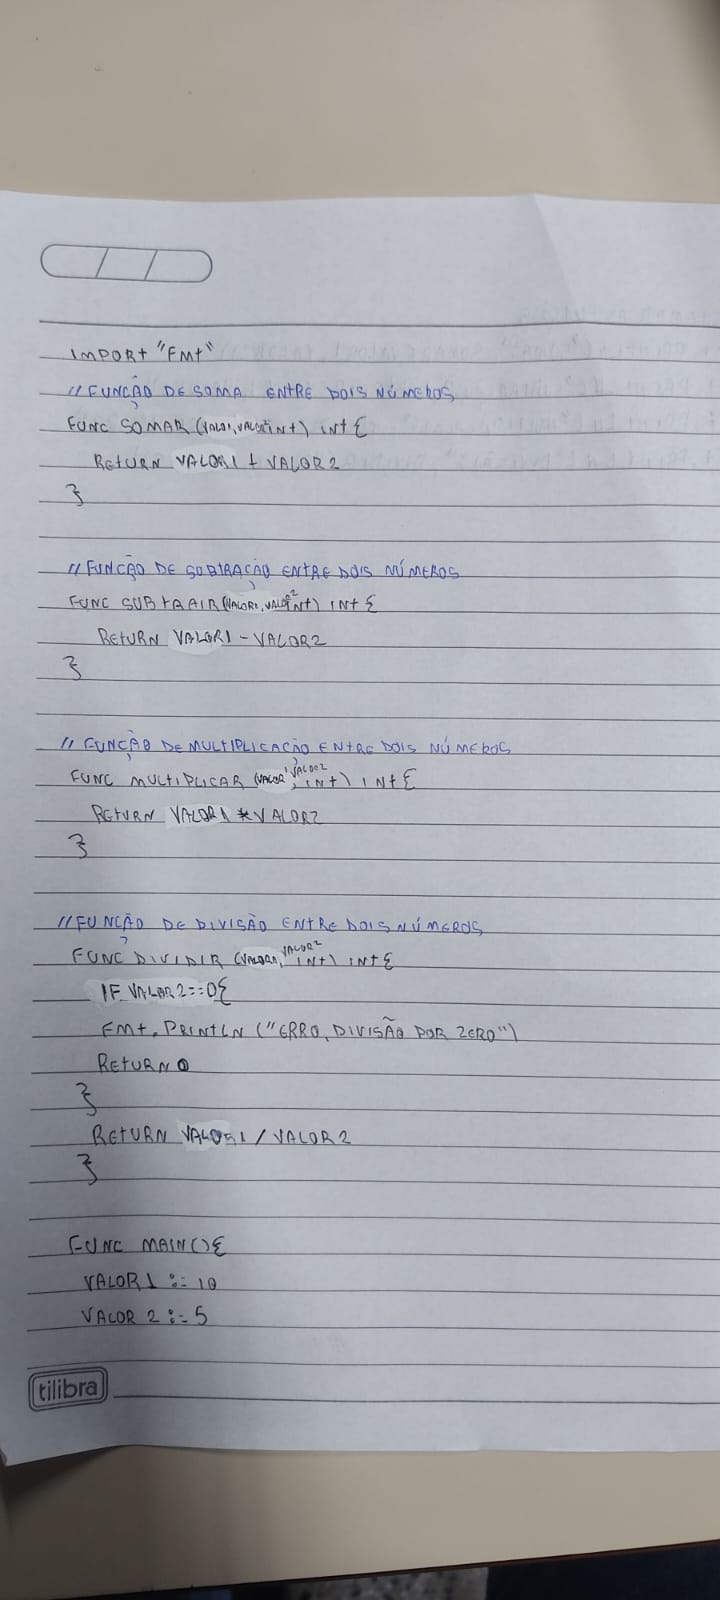 IMPORT "FMT"
// FUNÇÃO DE SOMA ENTRE DOIS NÚMEROS
FUNC SOMAR (VALOR1, VALOR2 INT) INT {
RETURN VALOR1 + VALOR2
}
// FUNÇÃO DE SUBTRAÇÃO ENTRE DOIS NÚMEROS
FUNC SUBTRAIR (VALOR1, VALOR2 INT) INT {
RETURN VALOR1 - VALOR2
}
// FUNÇÃO DE MULTIPLICAÇÃO ENTRE DOIS NÚMEROS
FUNC MULTIPLICAR (VALOR1, VALOR2 INT) INT {
RETURN VALOR1 * VALOR2
}
// FUNÇÃO DE DIVISÃO ENTRE DOIS NÚMEROS
FUNC DIVIDIR (VALOR1, VALOR2 INT) INT {
IF VALOR2 == 0 {
FMT.PRINTLN ("ERRO, DIVISÃO POR ZERO")
RETURN 0
}
RETURN VALOR1 / VALOR2
}
FUNC MAIN() {
VALOR1 := 10
VALOR 2 := 5
tilibra